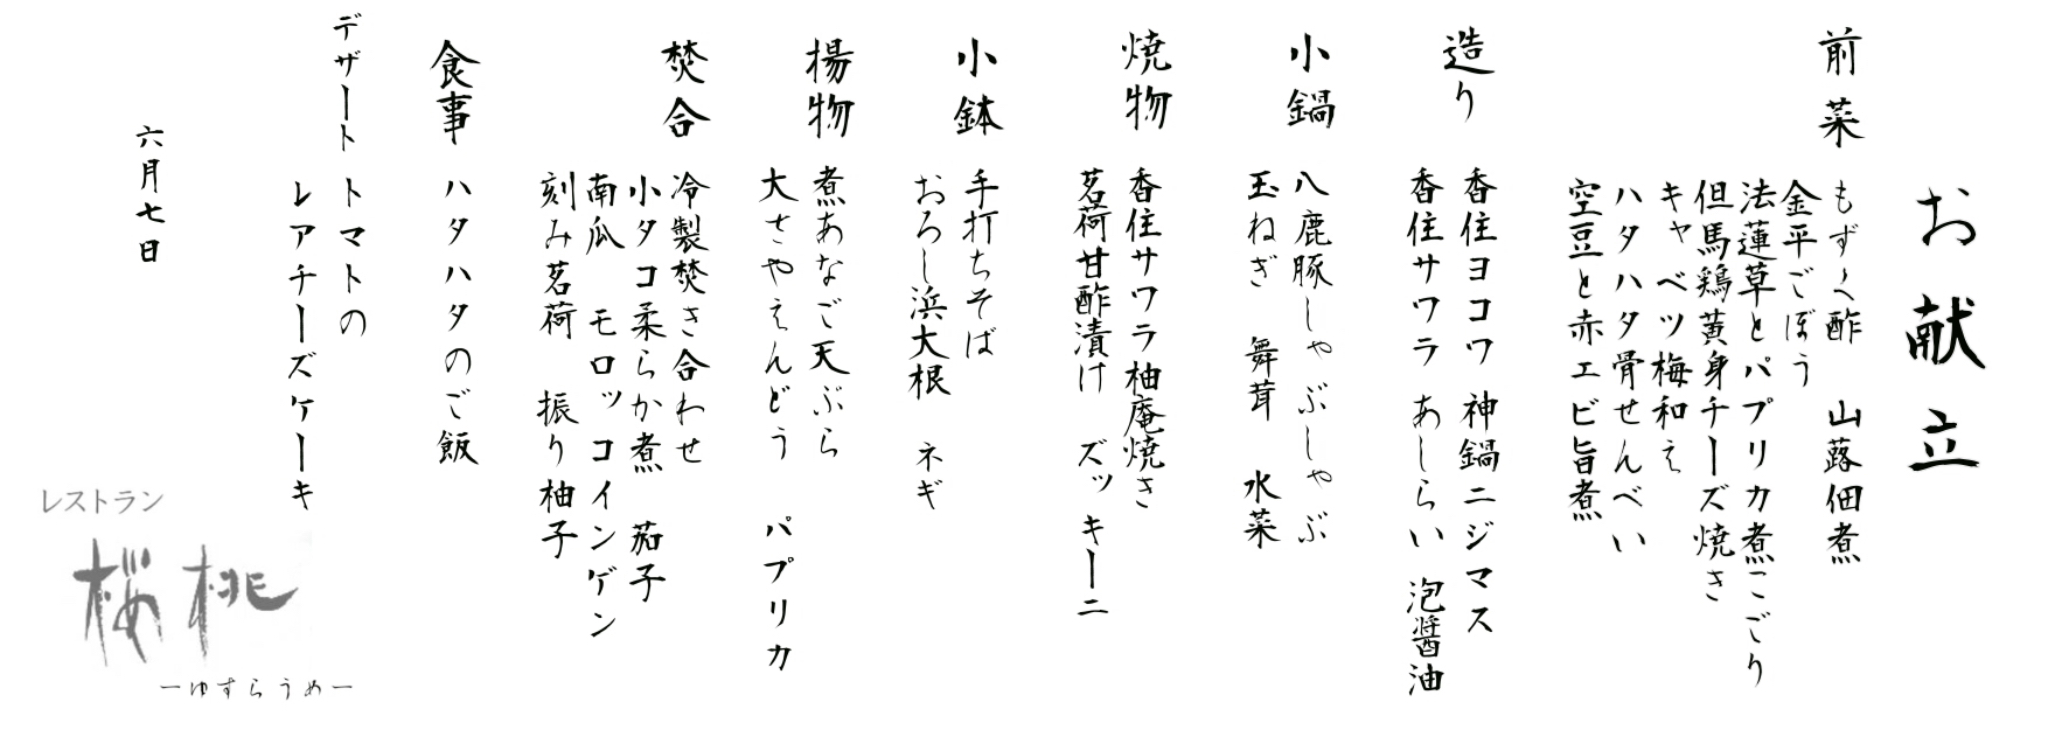 お献立
前菜
もずく酢　山蕗佃煮
金平ごぼう
法蓮草とパプリカ煮こごり
但馬鶏黄身チーズ焼き
キャベツ梅和え
ハタハタ骨せんべい
空豆と赤エビ旨煮
造り
香住ヨコワ　神鍋ニジマス
香住サワラ　あしらい　泡醤油
小鍋
八鹿豚しゃぶしゃぶ
玉ねぎ　舞茸　水菜
焼物
香住サワラ柚庵焼き
茗荷甘酢漬け　ズッキーニ
小鉢
手打ちそば
おろし浜大根　ネギ
揚物
煮あなご天ぷら
大さやえんどう　パプリカ
焚合
冷製焚き合わせ
小タコ柔らか煮　茄子
南瓜　モロッコインゲン
刻み茗荷　振り柚子
食事　ハタハタのご飯
デザート　トマトの
レアチーズケーキ
六月七日
レストラン
桜桃
ーゆすらうめー